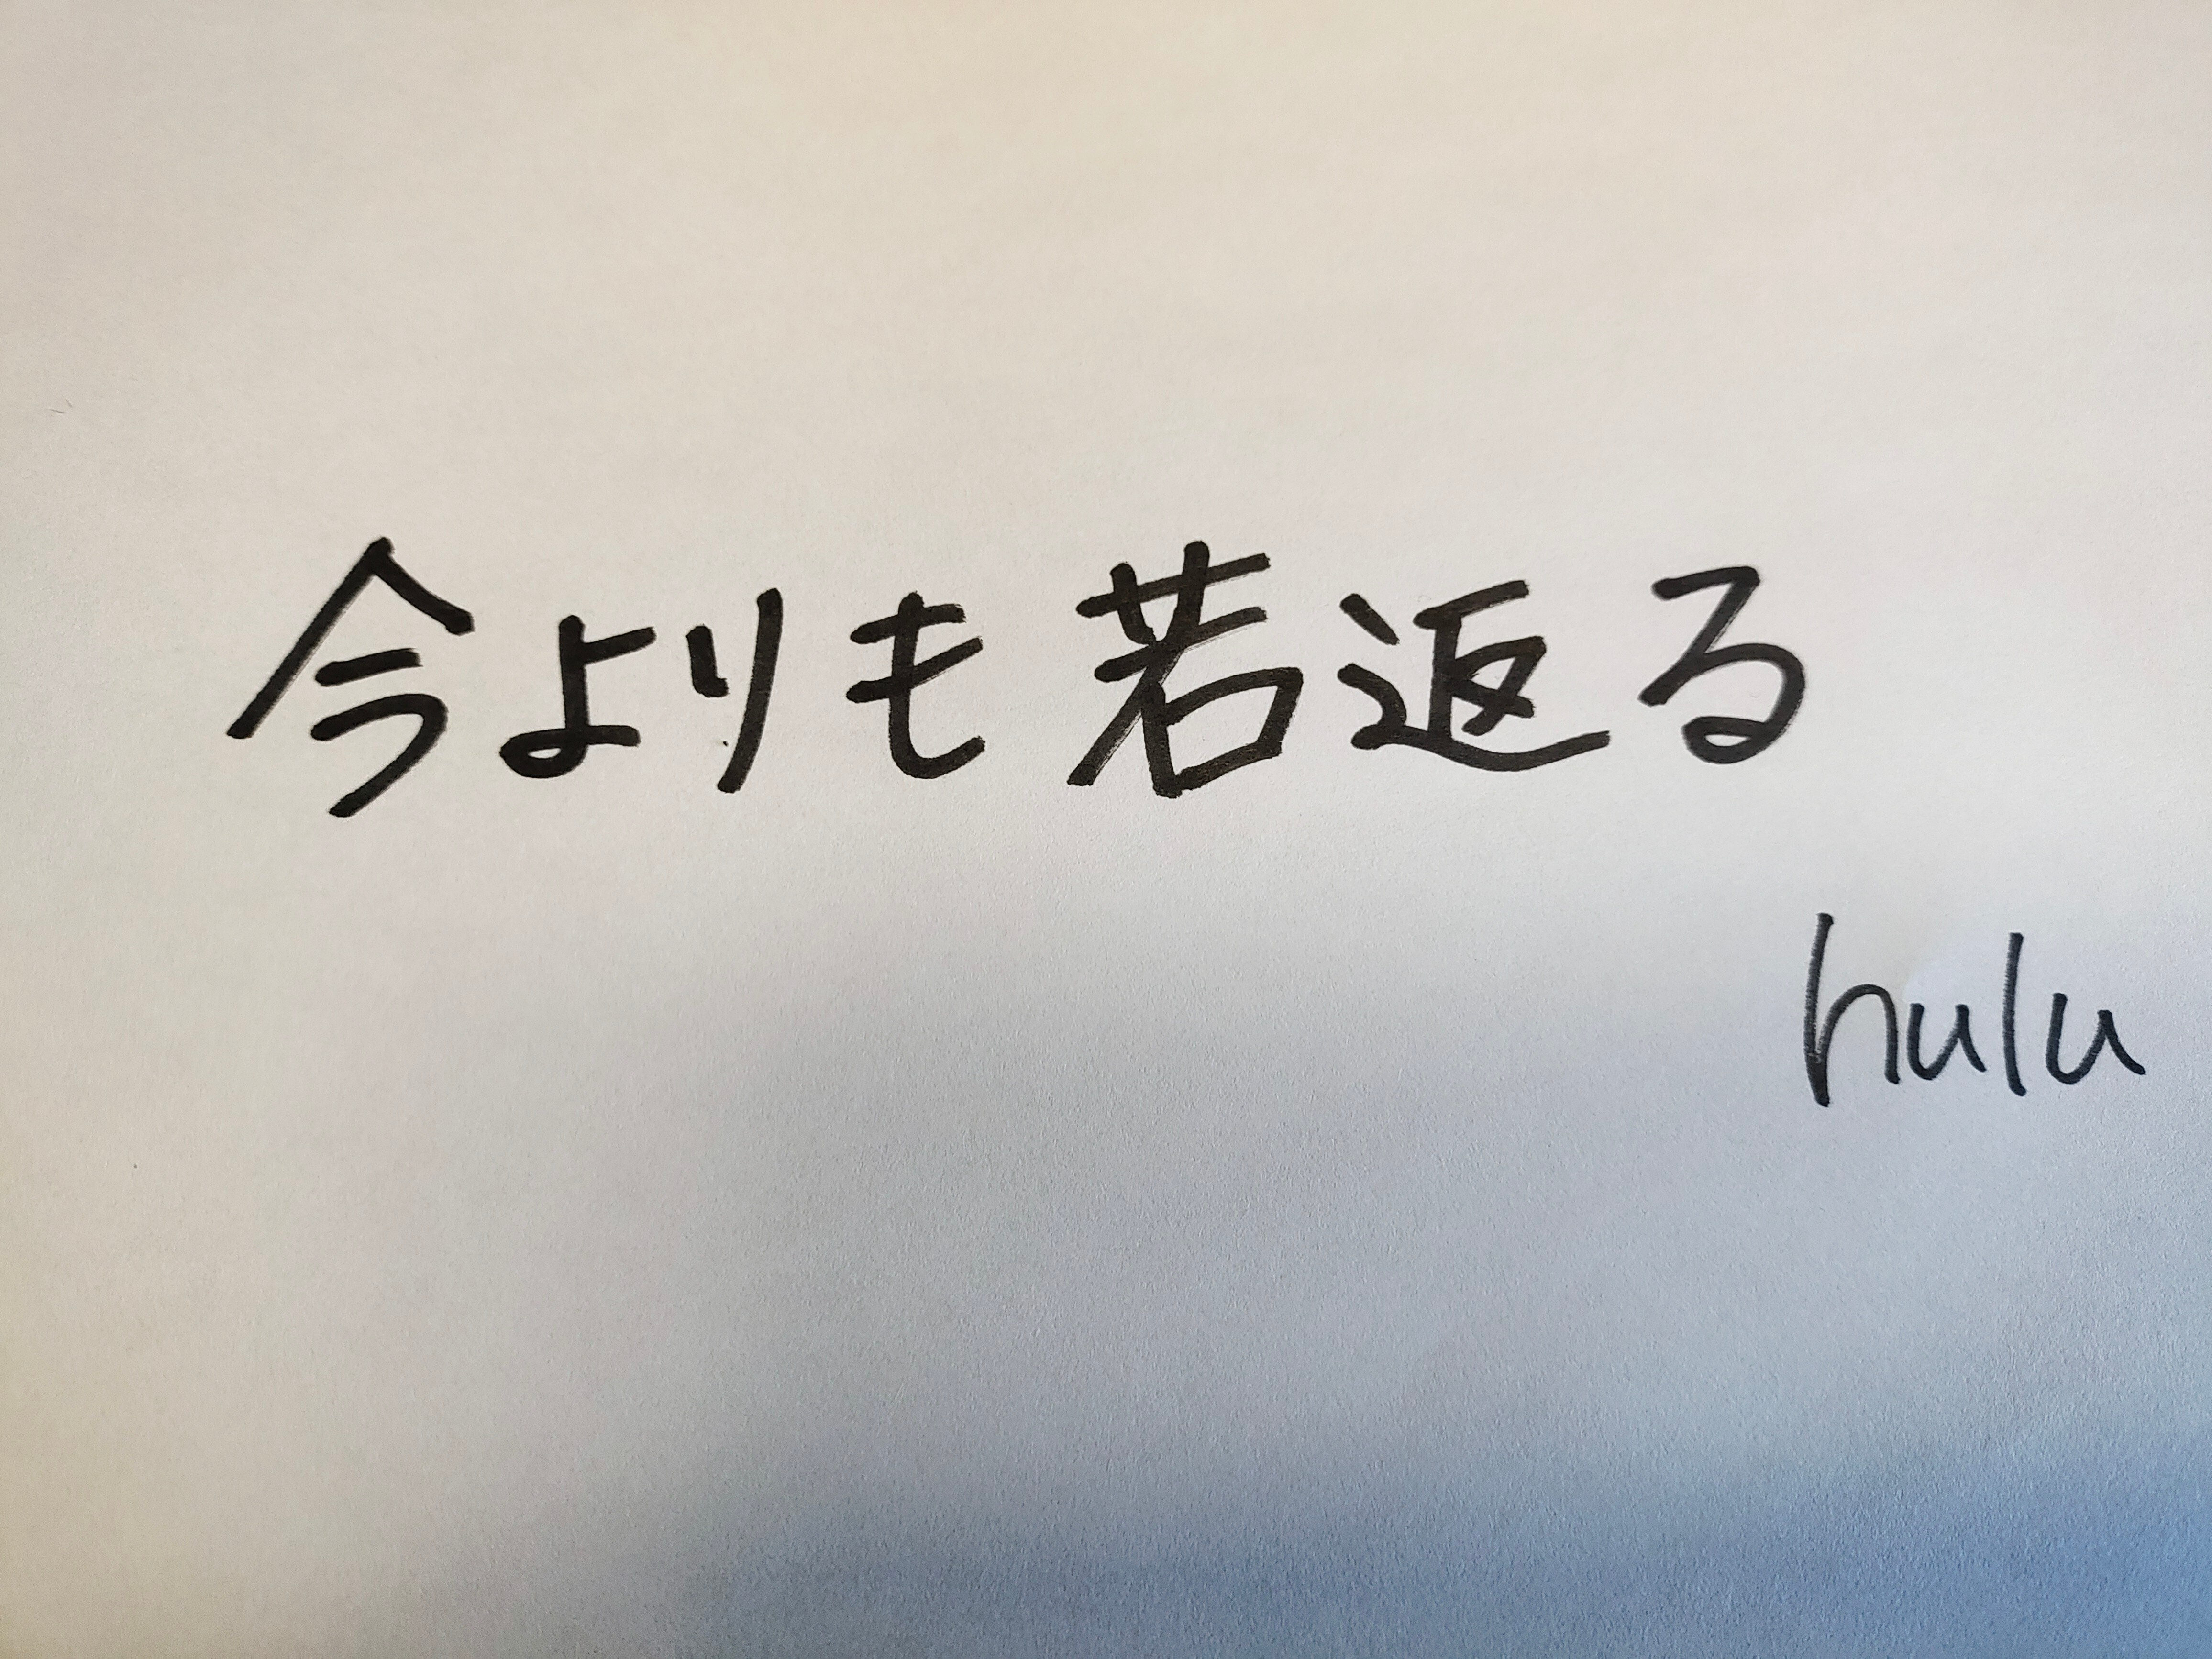 今よりも若返る
hulu